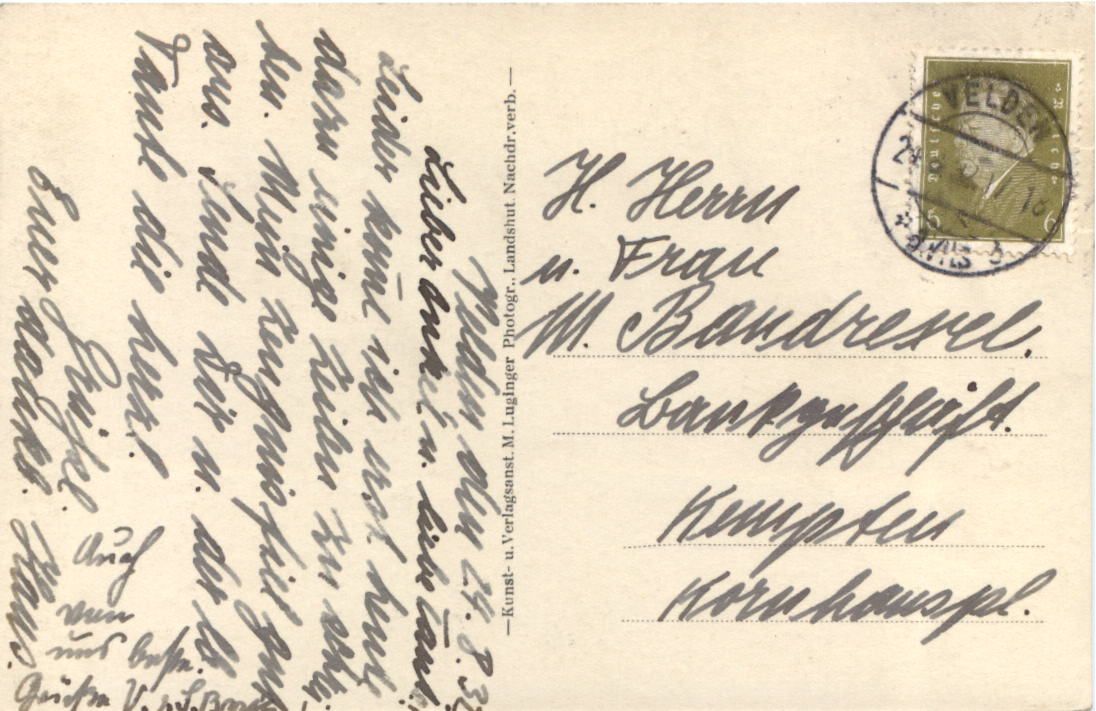 Velden den 24.8.32
Lieber Onkel u. liebe Tante!
Leider komme ich erst heute
dazu einige Zeilen zu schrei-
ben. Mein Zeugnis fiel gut
aus. Sende Dir u. der lb.
Tante die herzl.
Grüße!
Euer dankb. Hans.
Auch
von
uns beste
Grüße
—Kunst- u. Verlagsanst. M. Luginger Photogr., Landshut. Nachdr. verb.—
Deutsches Reich
6 6
VELDEN
H. Herrn
u. Frau
M. Baudrexel.
Bankgeschäft.
Kempten
Kornhauspl.